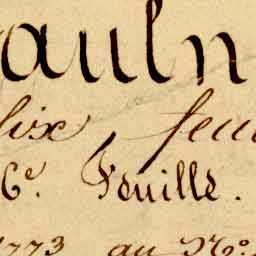 auln
dix feui
6e. Feuille.
1773 au No.